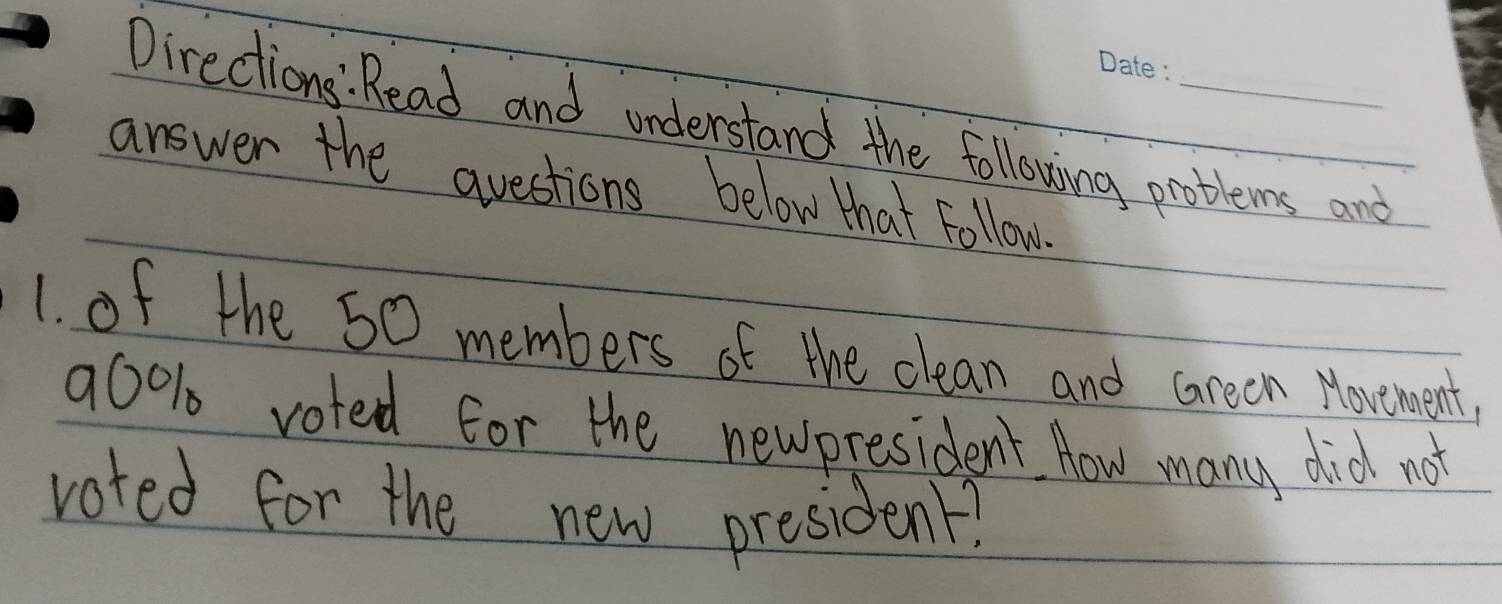 Date:
Directions: Read and understand the following problems and
answer the questions below that Follow.
1. of the 50 members of the clean and Green Movement,
90% voted for the newpresident. How many did not
voted for the new president?